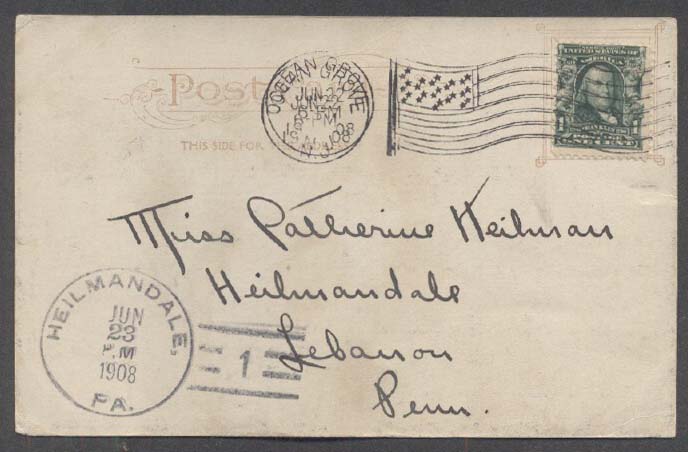 Post
THIS SIDE FOR THE
OCEAN GROVE
JUN 22
1908
N.J.
UNITED STATES OF
ONE CENT
Miss Catherine Heilman
Heilmandale
Lebanon
Penn.
HEILMANDALE,
JUN
23
.M
1908
PA.
1